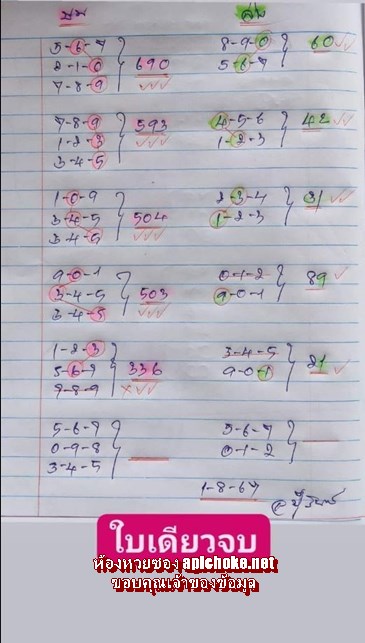 บน ล่าง
5-6-7 8-9-0 60
2-1-0 690 5-6-7
7-8-9
7-8-9 593 4-5-6 42
1-2-3 1-2-3
3-4-5
1-0-9 2-3-4 31
3-4-5 504 1-2-3
3-4-5
9-0-1 0-1-2 89
3-4-5 503 9-0-1
3-4-5
1-2-3 3-4-5 21
5-6-7 336 9-0-1
7-8-9
5-6-7 5-6-7
0-9-8 0-1-2
3-4-5
1-8-67
ใบเดียวจบ
ห้องหวยซอง aplchoke.net
ขอบคุณเจ้าของข้อมูล